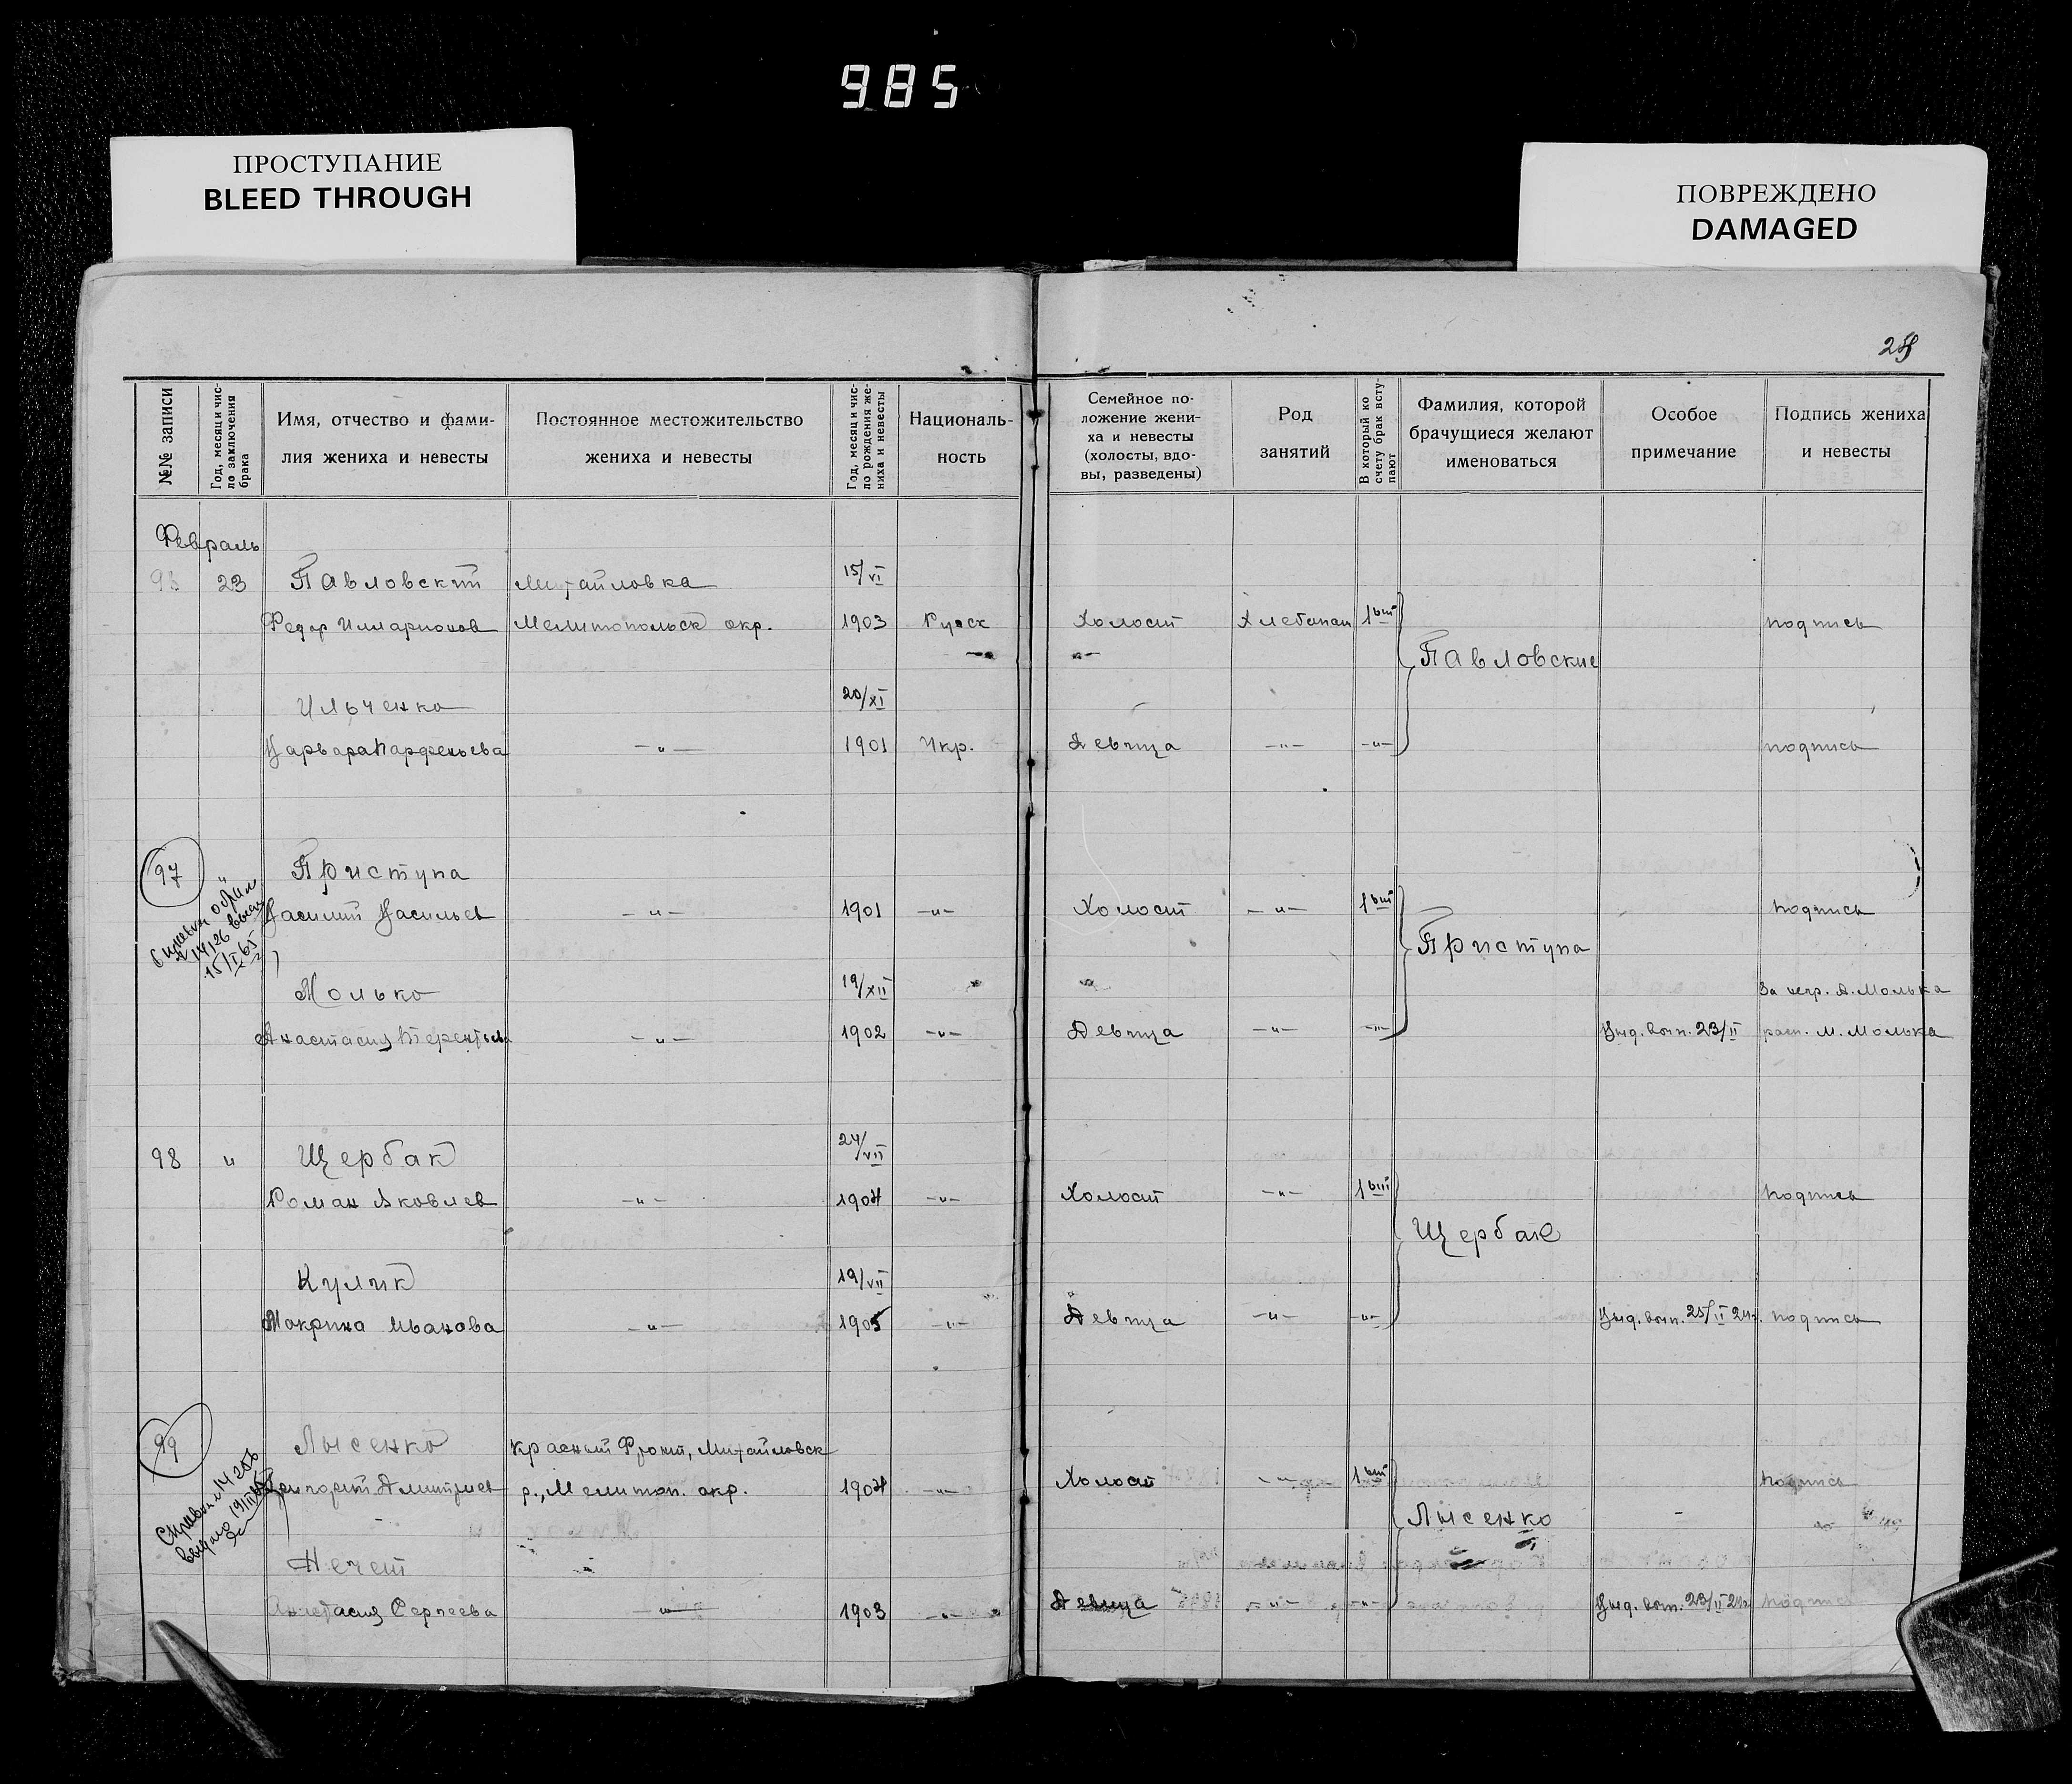 985
ПРОСТУПАНИЕ
BLEED THROUGH
ПОВРЕЖДЕНО
DAMAGED
№№ записи
Год, месяц и число заключения брака
Имя, отчество и фами-
лия жениха и невесты
Постоянное местожительство
жениха и невесты
Год, месяц и чис-
ло рождения же-
ниха и невесты
Националь-
ность
Семейное по-
ложение жени-
ха и невесты
(холосты, вдо-
вы, разведены)
Род
занятий
В который по
счету брак всту-
пают
Фамилия, которой
брачущиеся желают
именоваться
Особое
примечание
Подпись жениха
и невесты
Февраль
23 Павловский Михайловка 15/VI
Федор Илларионов Мелитопольск окр. 1903 Русск Холост Хлебопаш 1ый подпись
Павловские
Ильченко 20/XI
Варвара Парфеньева —"— 1901 Укр. Девица —"— —"— подпись
97 " Приступа
Василий Васильев —"— 1901 —"— Холост —"— 1ый подпись
15/I 65
Приступа
Молько 19/XII За негр. А. Молька
Анастасия Терентьева —"— 1902 —"— Девица —"— —"— Выд. вып. 23/II расп. М. Молька
98 " Щербак 24/VII
Роман Яковлев —"— 1904 —"— Холост —"— 1ый подпись
Щербак
Кулик 19/VII
Мокрина Иванова —"— 1905 —"— Девица —"— —"— Выд. вып. 25/II 24г. подпись
99 Лысенко Красный Фронт, Михайловск
Григорий Дмитриев р., Мелитоп. окр. 1904 —"— Холост —"— 1ый подпись
Лысенко
Нечет
Анастасия Сергеева —"— 1903 —"— Девица —"— —"— Выд. вып. 23/II 24г. подпись